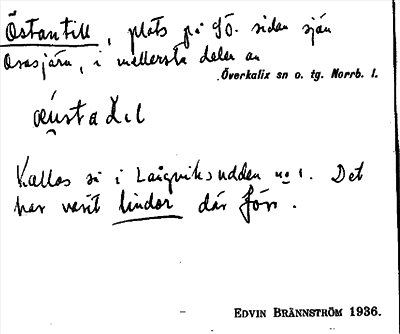 Östantill, plats på sö. sidan sjön
Orasjärv, i mellersta delen av
Överkalix sn o. tg. Norrb. l.
Kallas så i Laigviksudden no 1. Det
har varit lindor där förr.
EDVIN BRÄNNSTRÖM 1936.